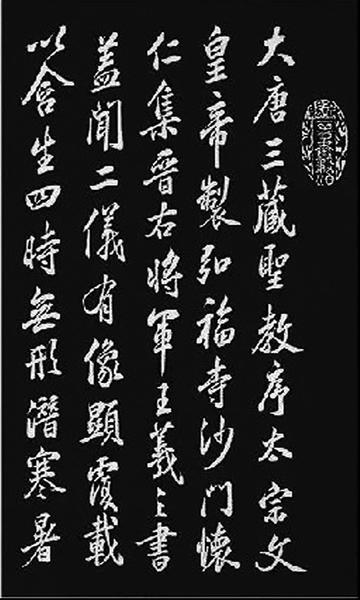 大唐三藏聖教序太宗文
皇帝製弘福寺沙門懷
仁集晉右將軍王羲之書
蓋聞二儀有像顯覆載
以含生四時無形潛寒暑